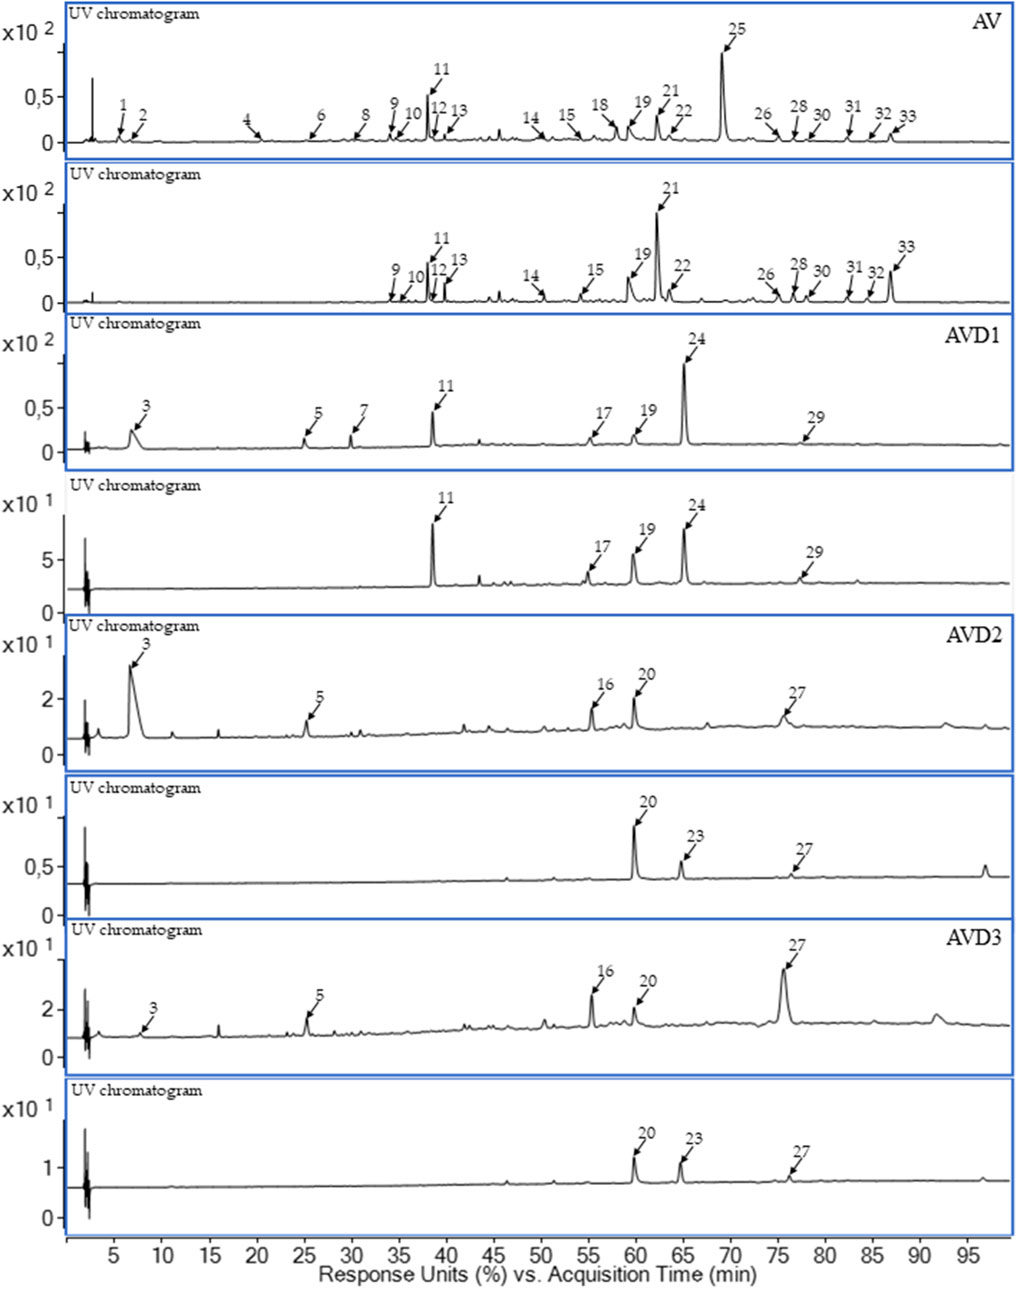 UV chromatogram
AV
x10 2
25
11
0,5
1
2
4
6
8
9
10
12
13
14
15
18
19
21
22
26
28
30
31
32
33
0
UV chromatogram
x10 2
21
11
13
33
0,5
9
10
12
14
15
19
22
26
28
30
31
32
0
UV chromatogram
AVD1
x10 2
24
11
0,5
3
5
7
17
19
29
0
UV chromatogram
x10 1
11
24
17
19
29
5
0
UV chromatogram
AVD2
x10 1
3
2
5
16
20
27
0
UV chromatogram
x10 1
20
23
27
0,5
0
UV chromatogram
AVD3
x10 1
27
16
20
2
3
5
0
UV chromatogram
x10 1
20
23
27
1
0
5 10 15 20 25 30 35 40 45 50 55 60 65 70 75 80 85 90 95
Response Units (%) vs. Acquisition Time (min)